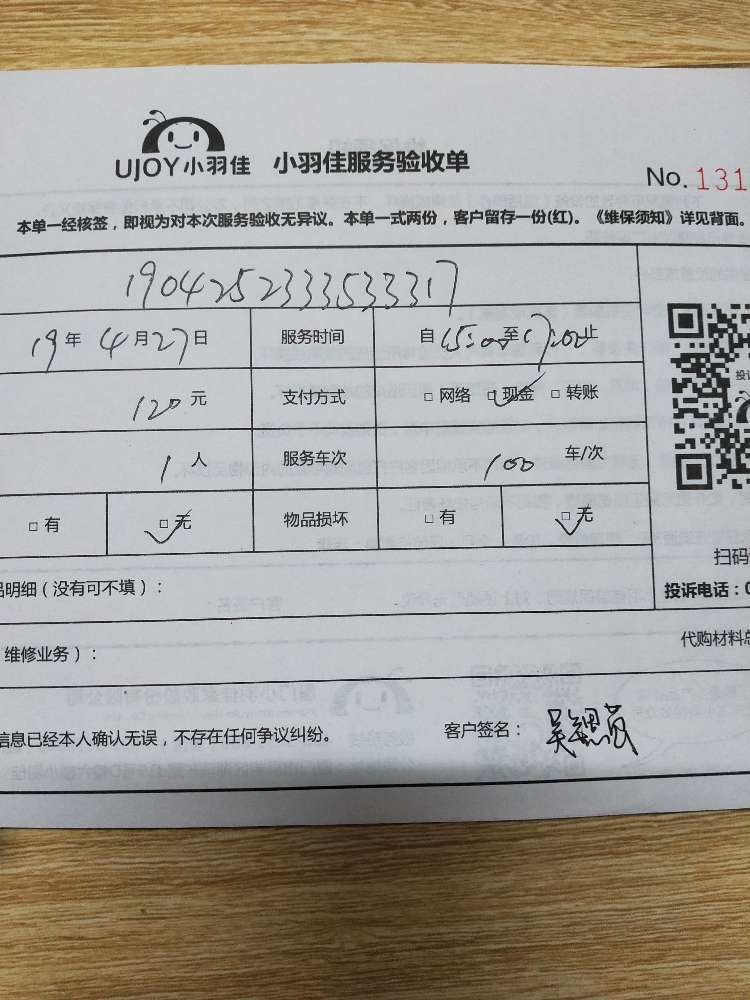 UJOY小羽佳 小羽佳服务验收单
No. 131
本单一经核签，即视为对本次服务验收无异议。本单一式两份，客户留存一份(红)。《维保须知》详见背面。
1904252333533317
19年4月27日 服务时间 自15:00至17:00止
120元 支付方式 □网络 □现金 □转账
1人 服务车次 100 车/次
□有 □无 物品损坏 □有 □无
扫码
品明细（没有可不填）：
投诉电话：0
维修业务）：
代购材料总
信息已经本人确认无误，不存在任何争议纠纷。 客户签名：